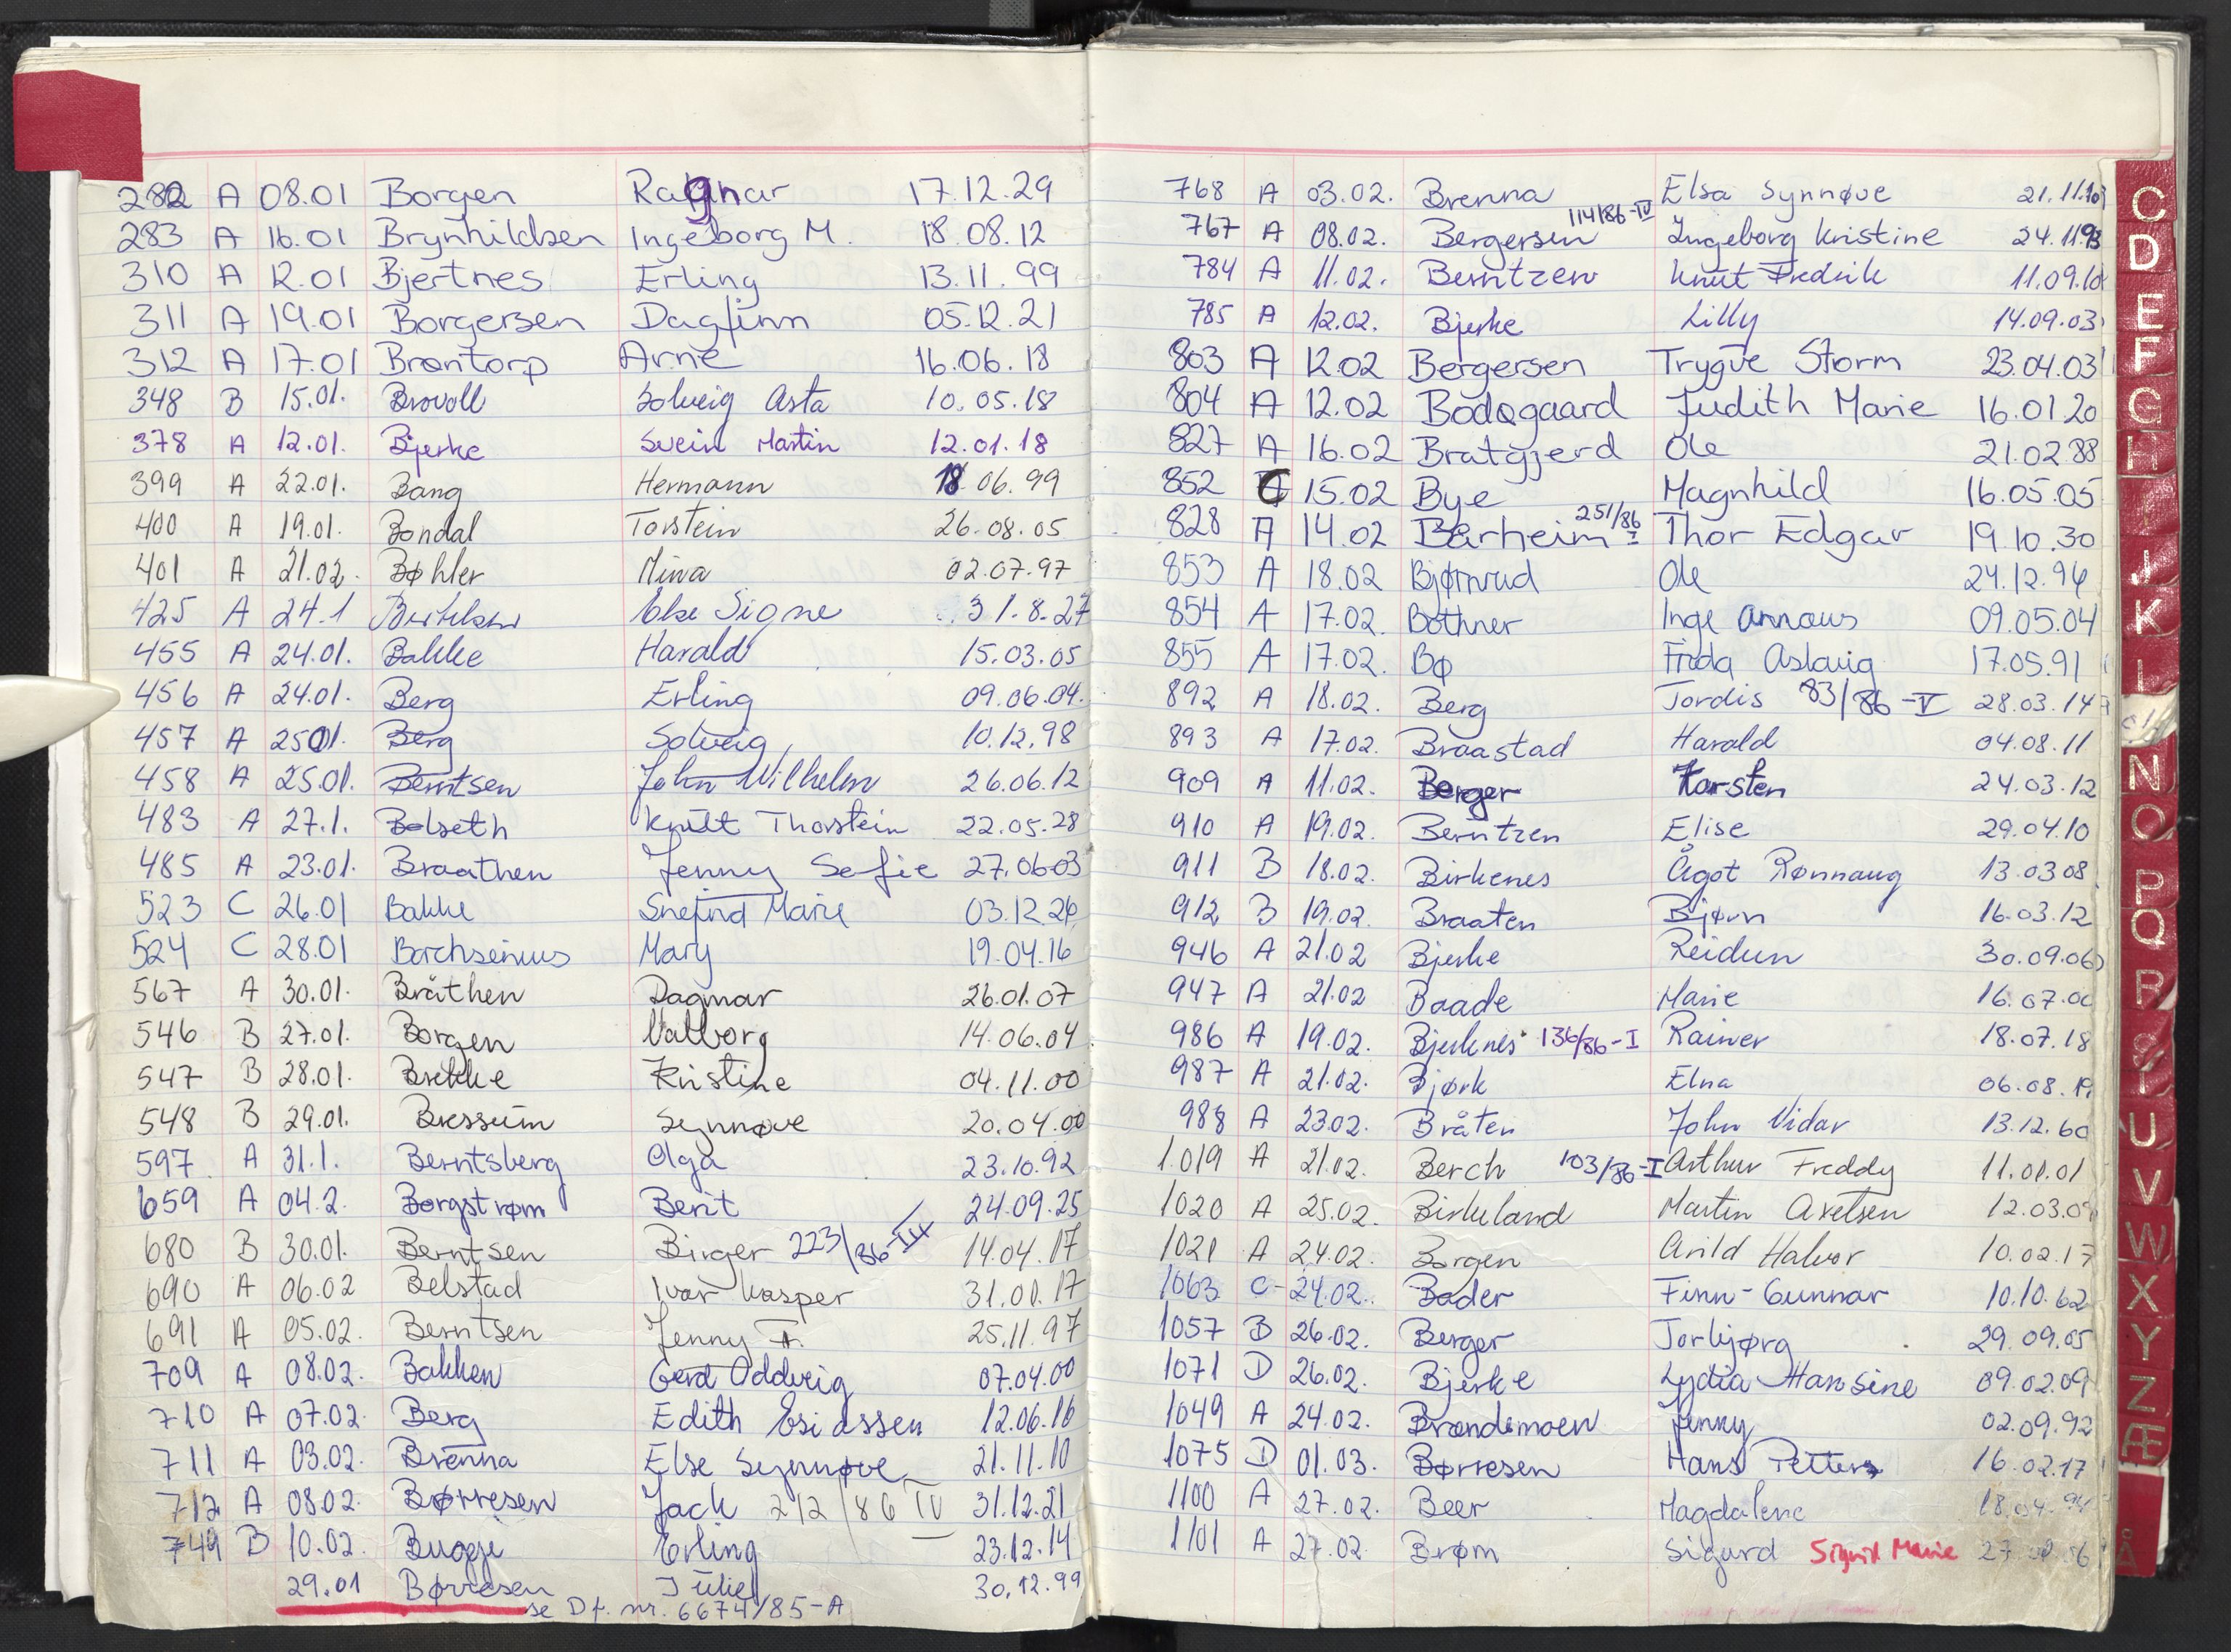 282 A 08.01 Borgen Ragnar 17.12.29
283 A 16.01 Brynhildsen Ingeborg M. 18.08.12
310 A 12.01 Bjertnes Erling 13.11.99
311 A 19.01 Borgersen Dagfinn 05.12.21
312 A 17.01 Brøntorp Arne 16.06.18
348 B 15.01. Brovoll Solveig Asta 10.05.18
378 A 12.01. Bjerke Svein Martin 12.01.18
399 A 22.01. Bang Hermann 18.06.99
400 A 19.01. Bondal Torstein 26.08.05
401 A 21.02. Bøhler Mina 02.07.97
425 A 24.1 Else Signe 31.8.27
455 A 24.01. Bakke Harald 15.03.05
456 A 24.01. Berg Erling 09.06.04.
457 A 25.01. Berg Solveig 10.12.98
458 A 25.01. Berntsen John Wilhelm 26.06.12
483 A 27.1. Bolseth Knut Thorstein 22.05.28
485 A 23.01. Braathen Jenny Sofie 27.06.03
523 C 26.01 Bakke Snefrid Marie 03.12.26
524 C 28.01 Borchsenius Mary 19.04.16
567 A 30.01. Bråthen Dagmar 26.01.07
546 B 27.01. Borgen Valborg 14.06.04
547 B 28.01. Brekke Kristine 04.11.00
548 B 29.01. Bressum Synnøve 20.04.00
597 A 31.1. Berntsberg Olga 23.10.92
659 A 04.2. Borgstrøm Berit 24.09.25
680 B 30.01. Berntsen Birger 223/86-III 14.04.17
690 A 06.02 Belstad Ivar Kasper 31.01.17
691 A 05.02. Berntsen Jenny 25.11.97
709 A 08.02. Bakken Gerd Oddveig 07.04.00
710 A 07.02. Berg Edith Esiassen 12.06.16
711 A 03.02. Brenna Else Synnøve 21.11.10
712 A 08.02. Børresen Jack 212/86 IV 31.12.21
749 B 10.02. Bugge Erling 23.12.14
29.01 Børresen Julie 30.12.99
se Df. nr. 6674/85-A
768 A 03.02. Brenna Elsa Synnøve 21.11.10
114/86-IV
767 A 08.02. Bergersen Ingeborg Kristine 24.11.93
784 A 11.02. Berntzen Knut Fredrik 11.09.10
785 A 12.02. Bjerke Lilly 14.09.03
803 A 12.02 Bergersen Trygve Storm 23.04.03
804 A 12.02 Bodøgaard Judith Marie 16.01.20
827 A 16.02 Bratgjerd Ole 21.02.88
852 C 15.02 Bye Magnhild 16.05.05
828 A 14.02 Bärheim 251/86 I Thor Edgar 19.10.30
853 A 18.02 Bjørnrud Ole 24.12.94
854 A 17.02. Bothner Inge 09.05.04
855 A 17.02. Bø Frida Aslaug 17.05.91
892 A 18.02. Berg Tordis 83/86-V 28.03.14
893 A 17.02. Braastad Harald 04.08.11
909 A 11.02. Berger Karsten 24.03.12
910 A 19.02. Berntzen Elise 29.04.10
911 B 18.02. Birkenes Ågot Rønnaug 13.03.08
912 B 19.02. Braaten Bjørn 16.03.12
946 A 21.02 Bjerke Reidun 30.09.06
947 A 21.02 Baade Marie 16.07.00
986 A 19.02. Bjerknes 136/86-I Rainer 18.07.18
987 A 21.02. Bjørk Elna 06.08.19
988 A 23.02. Bråten John Vidar 13.12.60
1.019 A 21.02. Berch 103/86-I Arthur Freddy 11.01.01
1020 A 25.02. Birkeland Martin Axelsen 12.03.09
1021 A 24.02. Borgen Arild Halvor 10.02.17
1063 C 24.02. Bader Finn-Gunnar 10.10.62
1057 B 26.02. Berger Torbjørg 29.09.05
1071 D 26.02. Bjerke Lydia Hansine 09.02.09
1049 A 24.02. Brandsmoen Jenny 02.09.92
1075 D 01.03. Børresen Hans Petter 16.02.17
1100 A 27.02. Beer Magdalene
1101 A 27.02. Brøm Sigurd Sigrid Marie
C
D
E
F
G
H
J
K
L
N
O
P
Q
R
S
T
U
V
W
X
Y
Z
Æ
Å